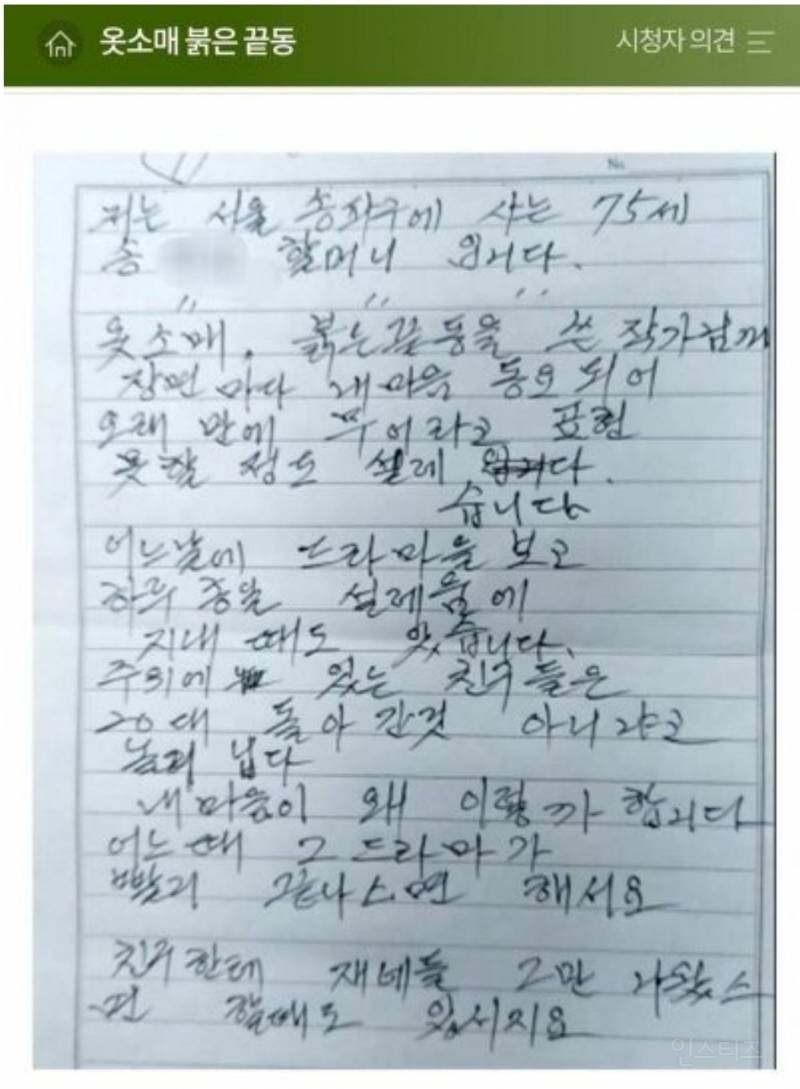 옷소매 붉은 끝동
시청자 의견
No.
저는 서울 송파구에 사는 75세
송 할머니 입니다.
옷소매. 붉는끝동을 쓴 작가님께
장면 마다 내마음 동요 되어
오래 만에 무어라고 표현
못할 정도 설레
습니다
어느날에 드라마을 보고
하루 종일 설레움에
지내 때도 있습니다.
주위에 있는 친구들은
20대 돌아 간것 아니냐고
놀리 닙다
내마음이 왜 이렇가 합니다
어느때 그 드라마가
빨리 끝나스면 해서요
친구한테 재네들 그만 나왔스
면 할때도 있서지요
인스티즈